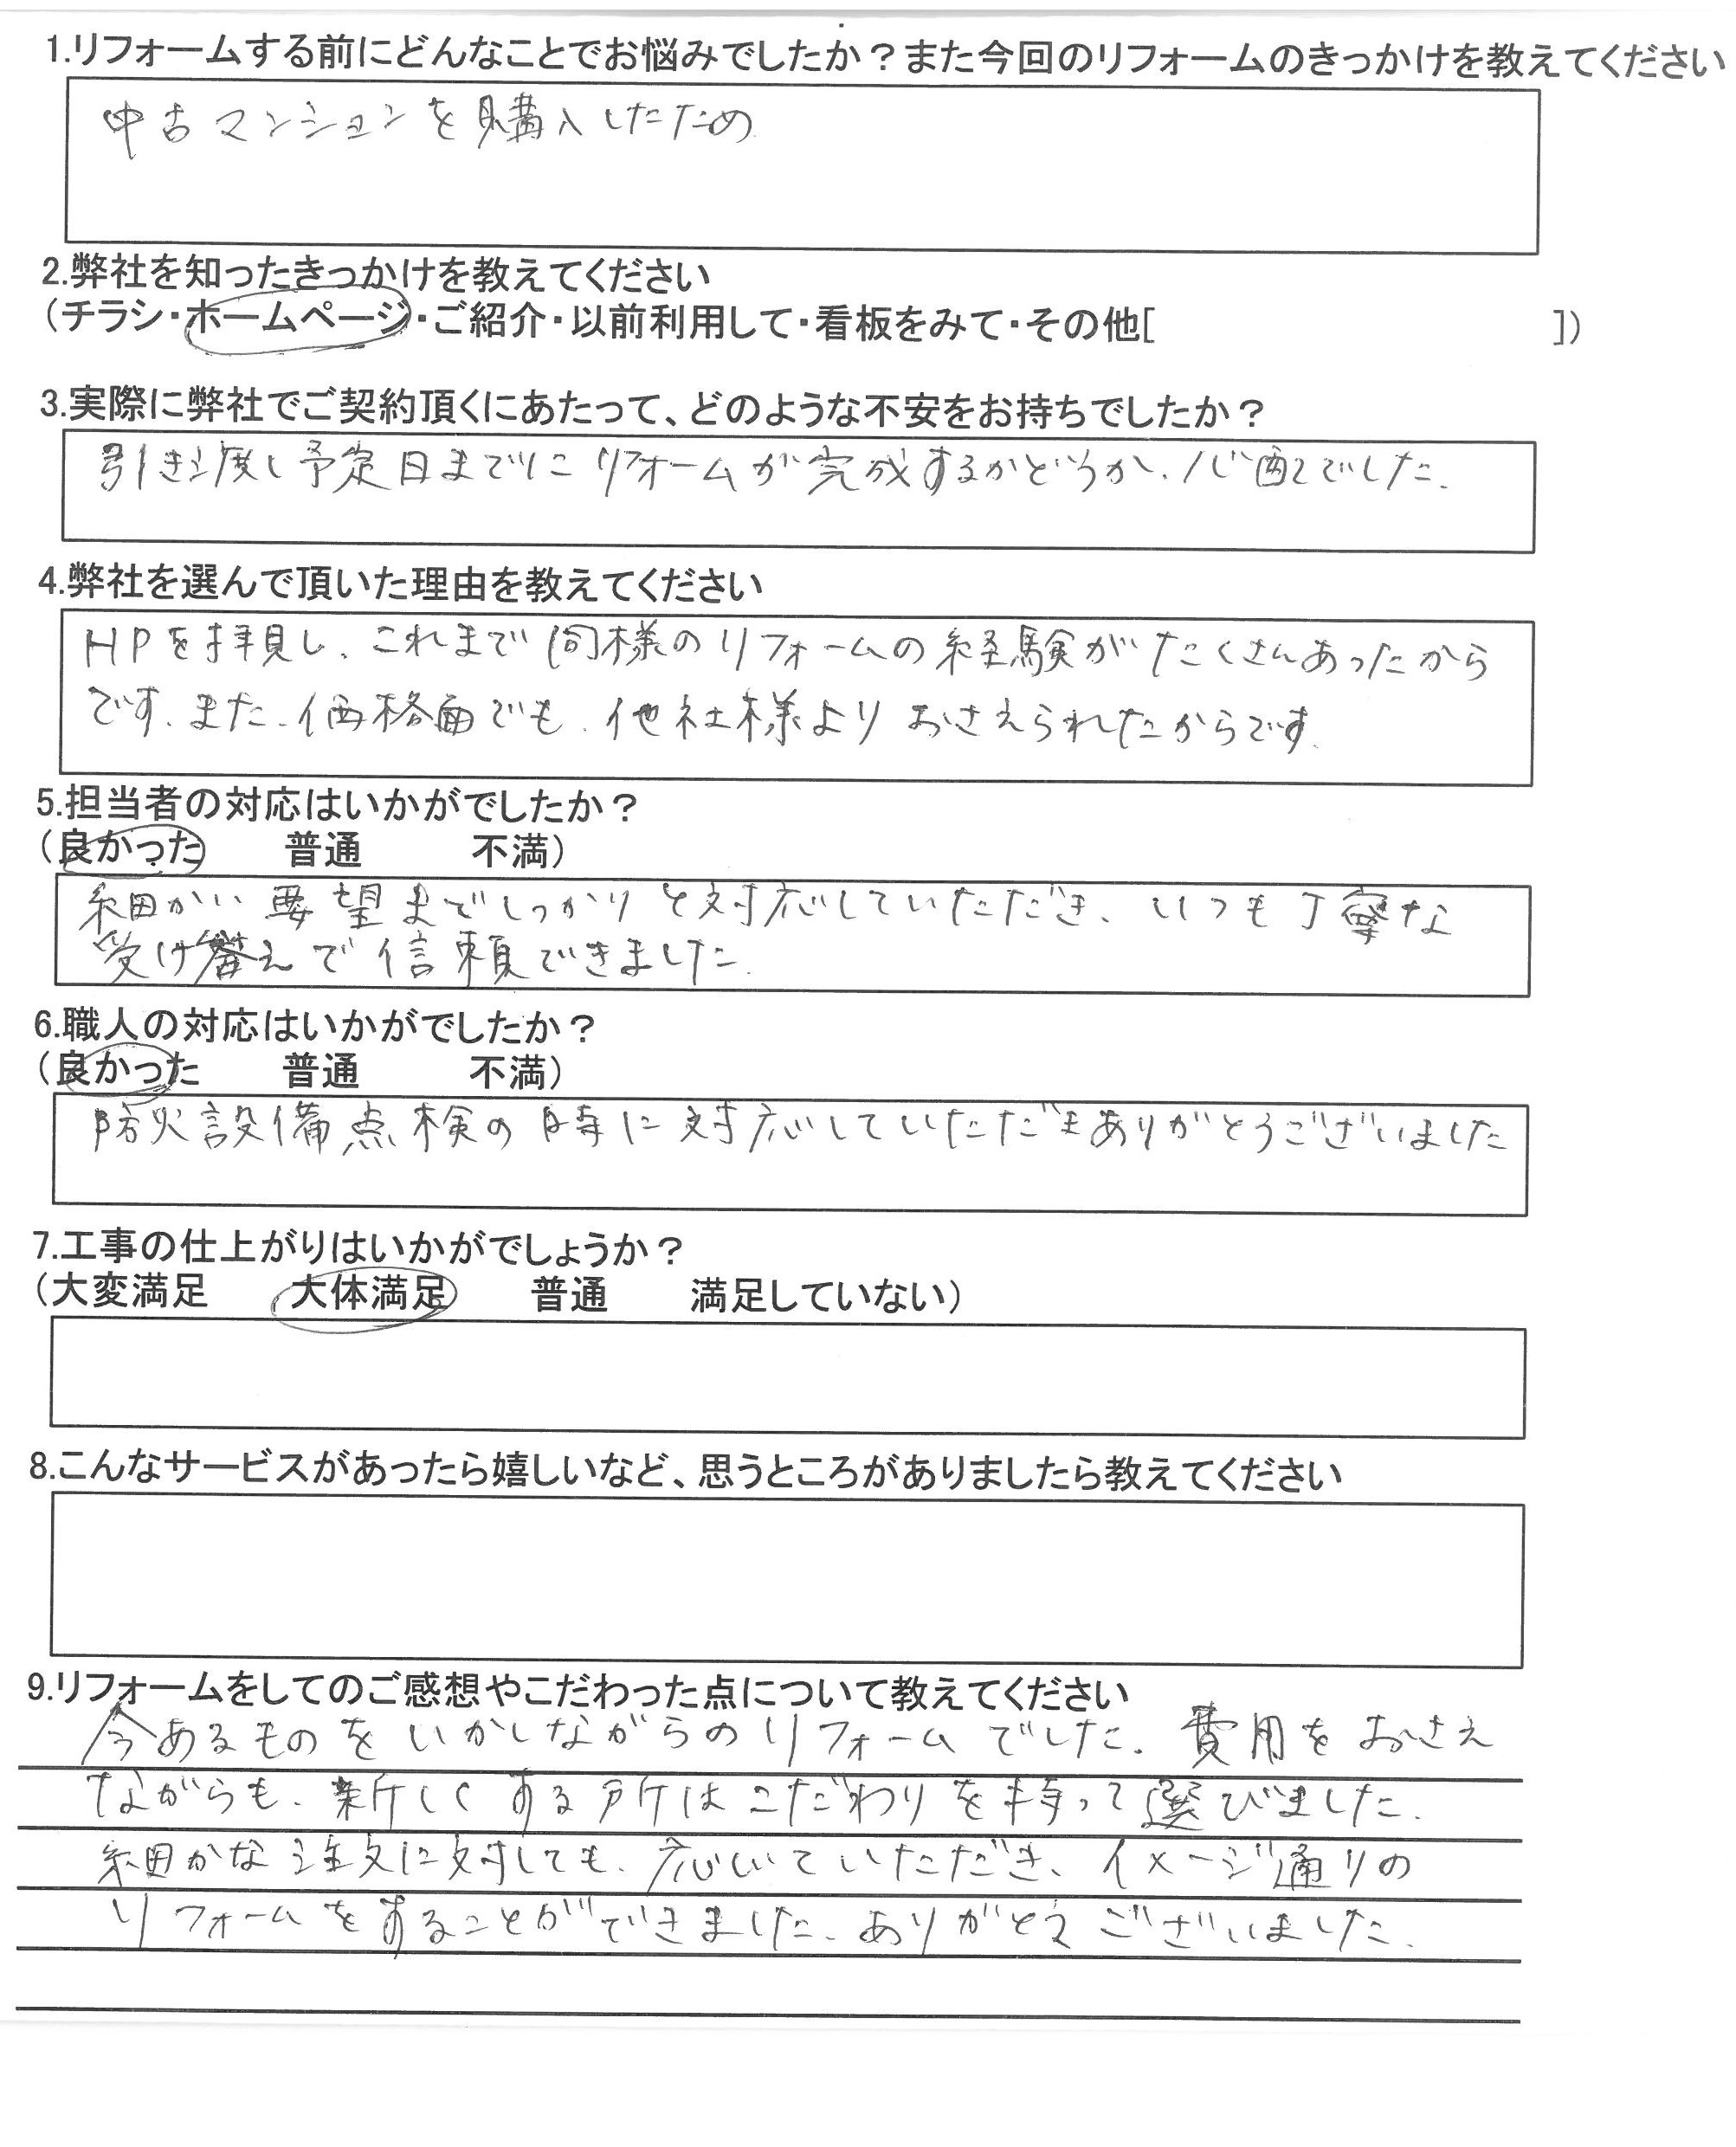 1.リフォームする前にどんなことでお悩みでしたか？また今回のリフォームのきっかけを教えてください
中古マンションを購入したため
2.弊社を知ったきっかけを教えてください
（チラシ・ホームページ・ご紹介・以前利用して・看板をみて・その他[　　　　　　　　　　])
3.実際に弊社でご契約頂くにあたって、どのような不安をお持ちでしたか？
引き渡し予定日までにリフォームが完成するかどうか、心配でした。
4.弊社を選んで頂いた理由を教えてください
HPを拝見し、これまで同様のリフォームの経験がたくさんあったから
です。また、価格面でも、他社様よりおさえられたからです。
5.担当者の対応はいかがでしたか？
（良かった　　普通　　　不満）
細かい要望までしっかりと対応していただだき、いつも丁寧な
受け答えで信頼できました。
6.職人の対応はいかがでしたか？
（良かった　　普通　　　不満）
防火設備点検の時に対応していただきありがとうございました
7.工事の仕上がりはいかがでしょうか？
（大変満足　　大体満足　　普通　　満足していない）
8.こんなサービスがあったら嬉しいなど、思うところがありましたら教えてください
9.リフォームをしてのご感想やこだわった点について教えてください
今あるものをいかしながらのリフォームでした。費用をおさえ
ながらも、新しくする所はこだわりを持って選びました。
細かな注文に対しても、応じていただだき、イメージ通りの
リフォームをすることができました。ありがとうございました。